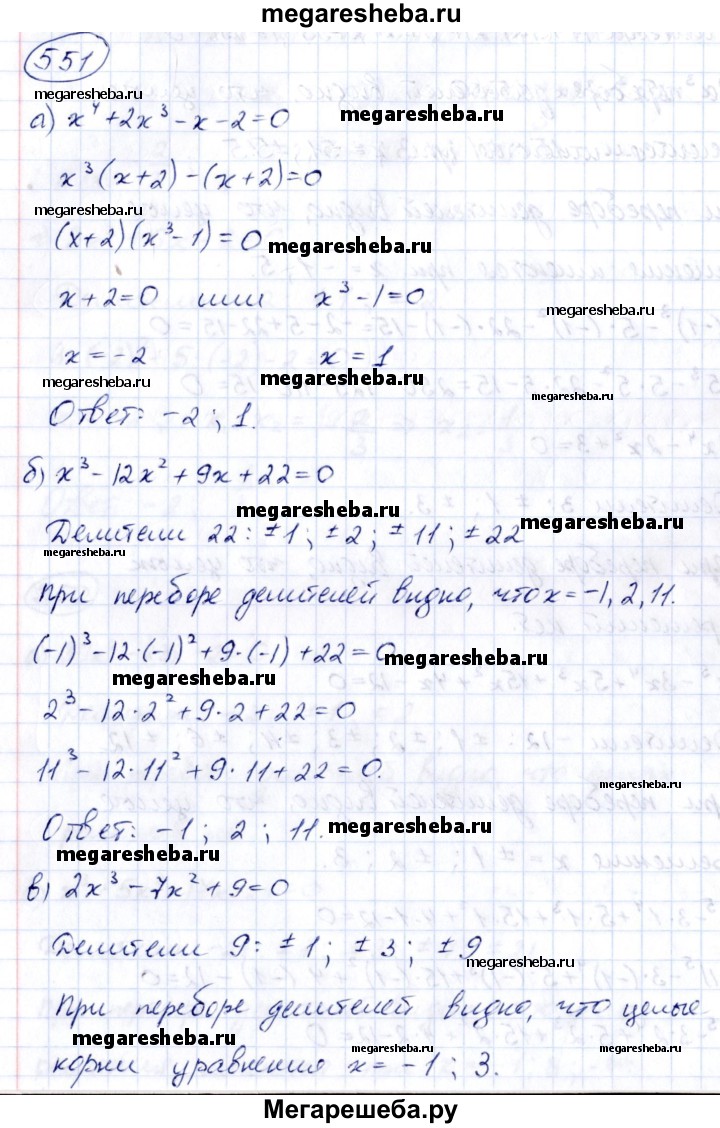 megaresheba.ru
551
megaresheba.ru
а) x⁴ + 2x³ - x - 2 = 0
megaresheba.ru
x³(x+2) - (x+2) = 0
megaresheba.ru
(x+2)(x³-1) = 0
megaresheba.ru
x+2=0 или x³-1=0
megaresheba.ru
x = -2 x = 1
megaresheba.ru
megaresheba.ru
megaresheba.ru
Ответ: -2; 1.
б) x³ - 12x² + 9x + 22 = 0
megaresheba.ru
Делители 22: ±1; ±2; ±11; ±22
megaresheba.ru
megaresheba.ru
При переборе делителей видно, что x = -1, 2, 11.
(-1)³ - 12·(-1)² + 9·(-1) + 22 = 0
megaresheba.ru
megaresheba.ru
2³ - 12·2² + 9·2 + 22 = 0
11³ - 12·11² + 9·11 + 22 = 0.
megaresheba.ru
Ответ: -1; 2; 11.
megaresheba.ru
megaresheba.ru
в) 2x³ - 7x² + 9 = 0
Делители 9: ±1; ±3; ±9
megaresheba.ru
При переборе делителей видно, что целые
megaresheba.ru
корни уравнения x = -1; 3.
megaresheba.ru
megaresheba.ru
Мегарешеба.ру